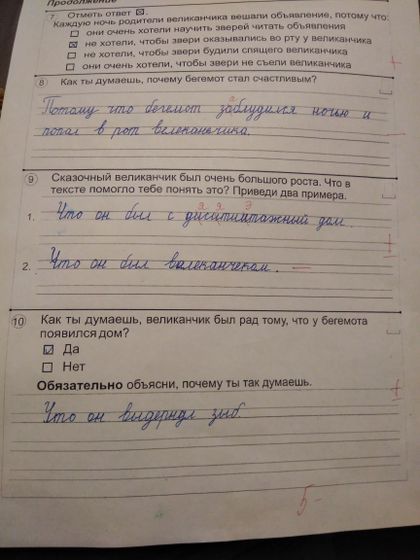 Продолжение
7 Отметь ответ ☑.
Каждую ночь родители великанчика вешали объявление, потому что:
☐ они очень хотели научить зверей читать объявления
☑ не хотели, чтобы звери оказывались во рту у великанчика
☐ не хотели, чтобы звери будили спящего великанчика
☐ они очень хотели, чтобы звери не съели великанчика
+
8 Как ты думаешь, почему бегемот стал счастливым?
Потому что бегемот заблудился ночью и
попал в рот велеканьчика.
9 Сказочный великанчик был очень большого роста. Что в
тексте помогло тебе понять это? Приведи два примера.
1. Что он был с диситиитажный дом.
+
2. Что он был велеканчеком. —
10 Как ты думаешь, великанчик был рад тому, что у бегемота
появился дом?
☑ Да
☐ Нет
Обязательно объясни, почему ты так думаешь.
+
Что он выдернул зыб.
5-